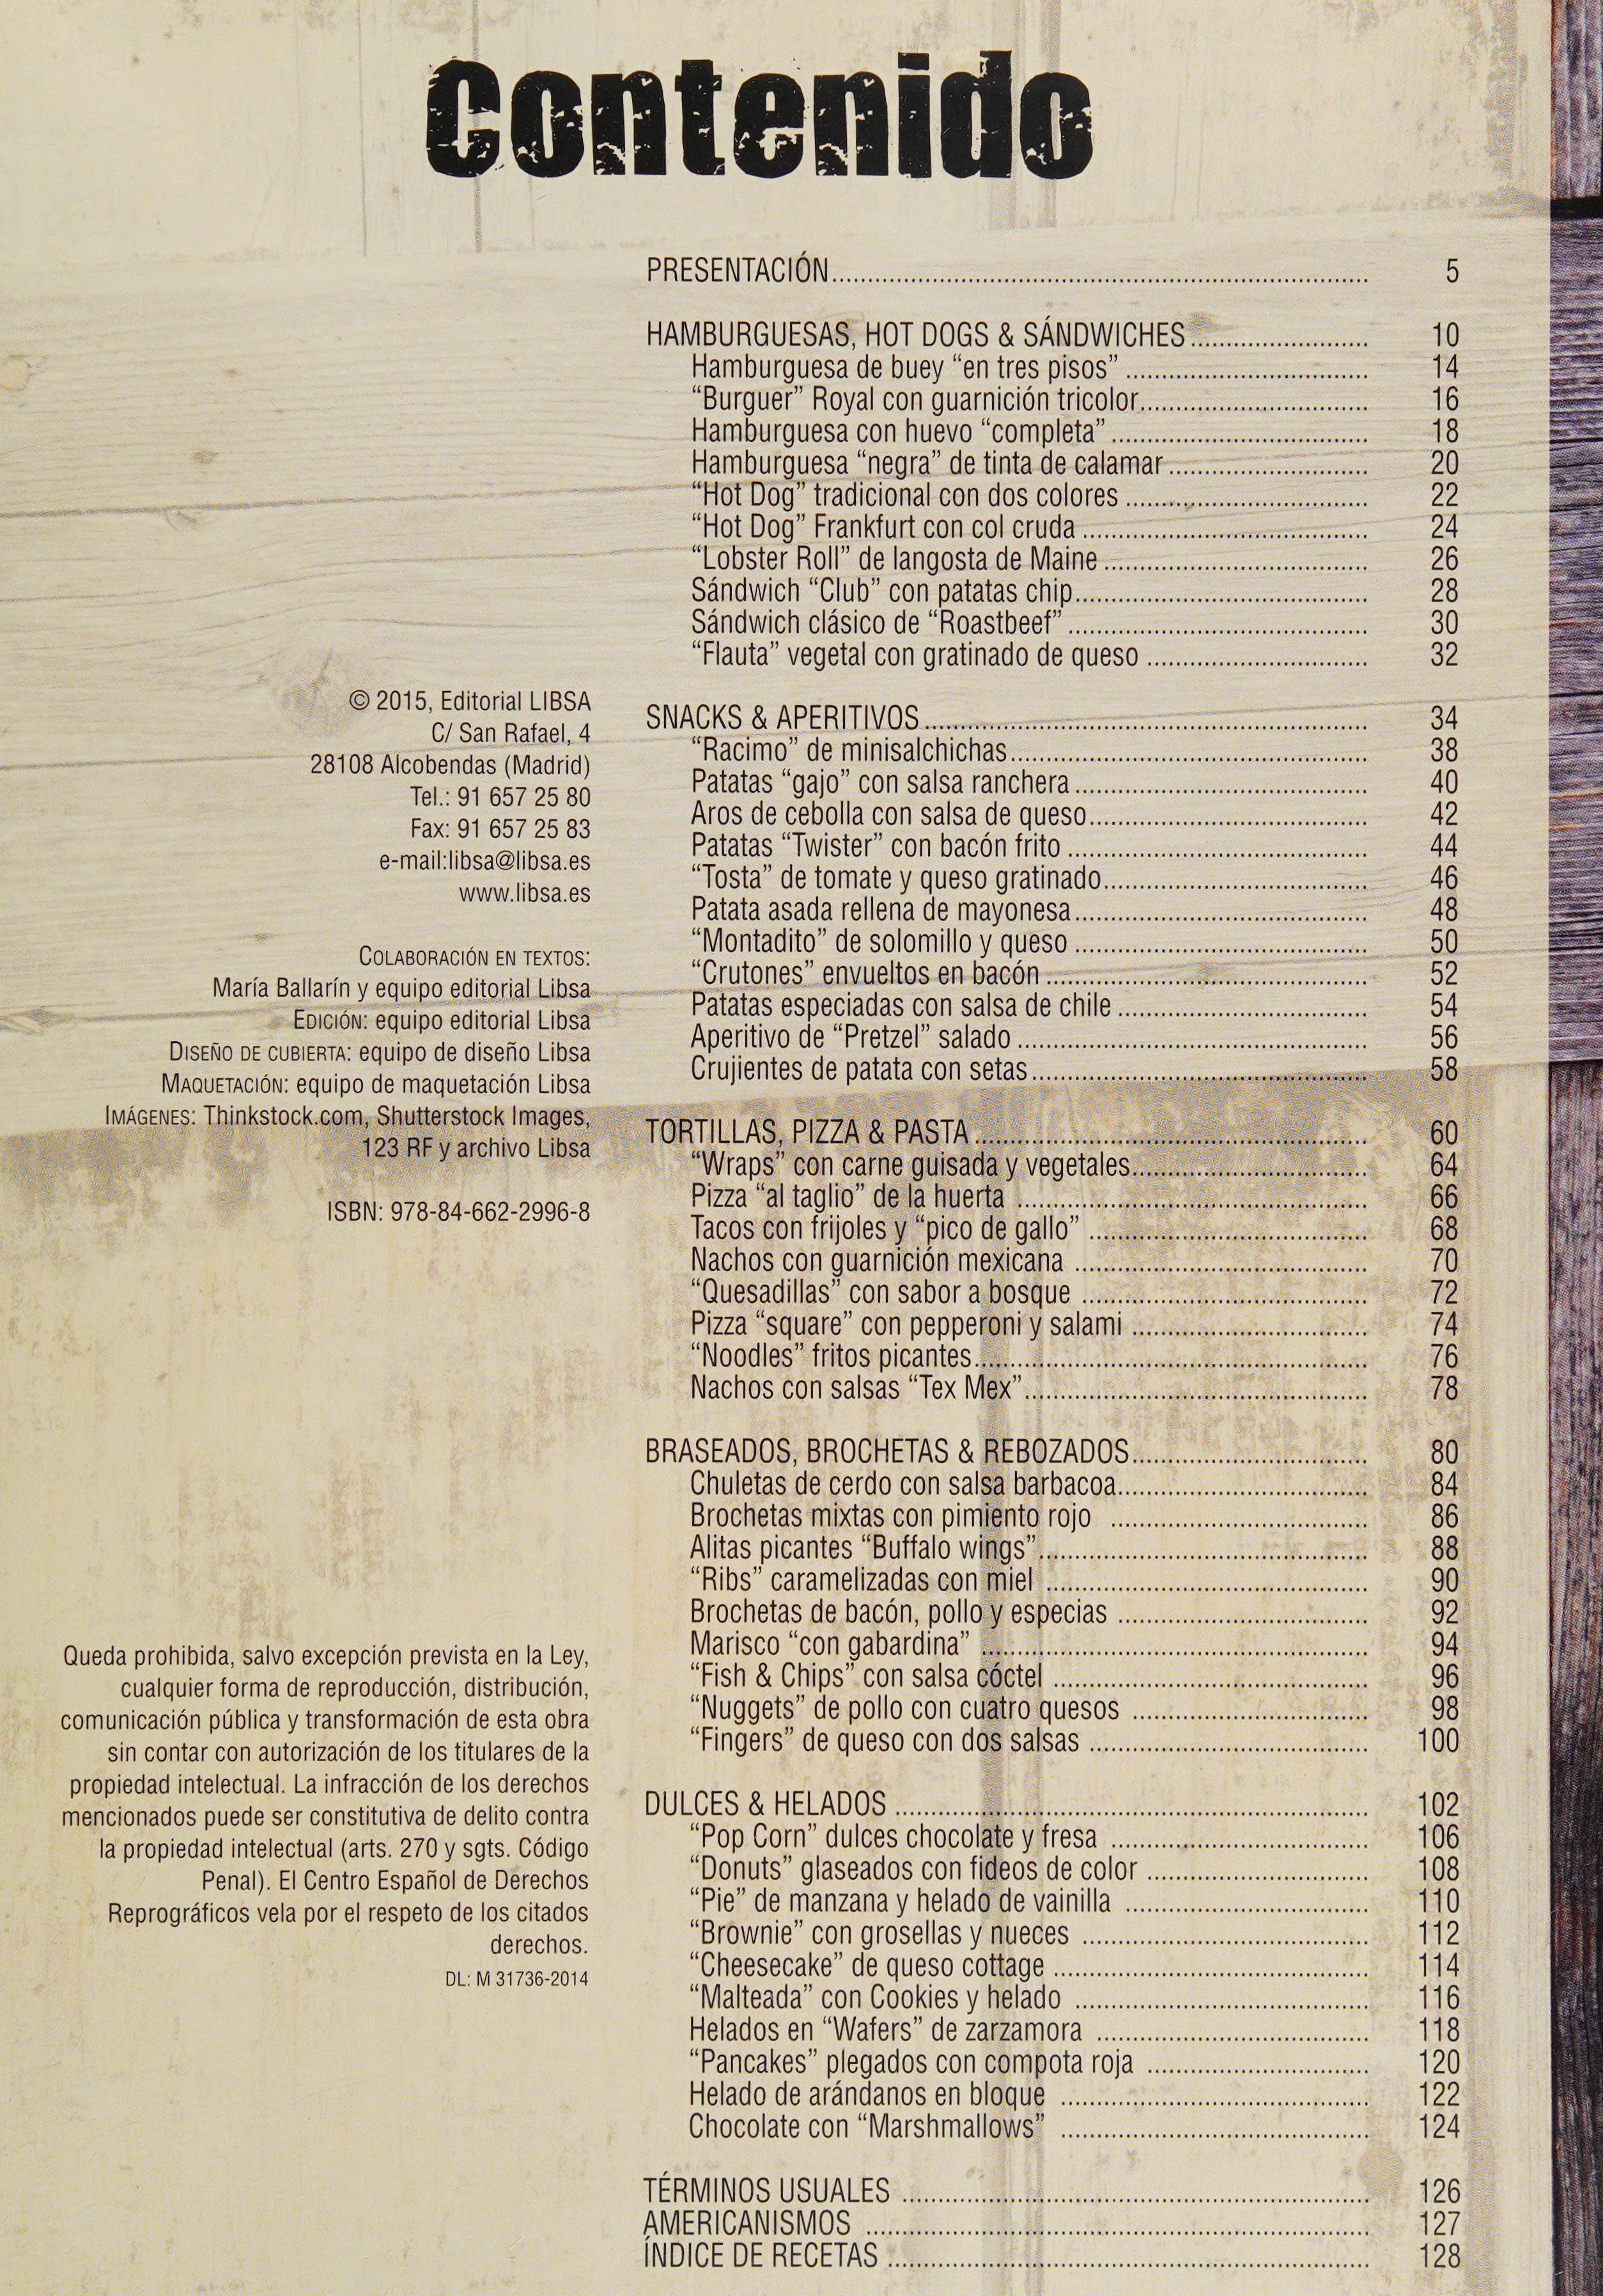 Contenido
© 2015, Editorial LIBSA
C/ San Rafael, 4
28108 Alcobendas (Madrid)
Tel.: 91 657 25 80
Fax: 91 657 25 83
e-mail:libsa@libsa.es
www.libsa.es
COLABORACIÓN EN TEXTOS:
María Ballarín y equipo editorial Libsa
EDICIÓN: equipo editorial Libsa
DISEÑO DE CUBIERTA: equipo de diseño Libsa
MAQUETACIÓN: equipo de maquetación Libsa
IMÁGENES: Thinkstock.com, Shutterstock Images,
123 RF y archivo Libsa
ISBN: 978-84-662-2996-8
Queda prohibida, salvo excepción prevista en la Ley,
cualquier forma de reproducción, distribución,
comunicación pública y transformación de esta obra
sin contar con autorización de los titulares de la
propiedad intelectual. La infracción de los derechos
mencionados puede ser constitutiva de delito contra
la propiedad intelectual (arts. 270 y sgts. Código
Penal). El Centro Español de Derechos
Reprográficos vela por el respeto de los citados
derechos.
DL: M 31736-2014
PRESENTACIÓN 5
HAMBURGUESAS, HOT DOGS & SÁNDWICHES 10
Hamburguesa de buey “en tres pisos” 14
“Burguer” Royal con guarnición tricolor 16
Hamburguesa con huevo “completa” 18
Hamburguesa “negra” de tinta de calamar 20
“Hot Dog” tradicional con dos colores 22
“Hot Dog” Frankfurt con col cruda 24
“Lobster Roll” de langosta de Maine 26
Sándwich “Club” con patatas chip 28
Sándwich clásico de “Roastbeef” 30
“Flauta” vegetal con gratinado de queso 32
SNACKS & APERITIVOS 34
“Racimo” de minisalchichas 38
Patatas “gajo” con salsa ranchera 40
Aros de cebolla con salsa de queso 42
Patatas “Twister” con bacón frito 44
“Tosta” de tomate y queso gratinado 46
Patata asada rellena de mayonesa 48
“Montadito” de solomillo y queso 50
“Crutones” envueltos en bacón 52
Patatas especiadas con salsa de chile 54
Aperitivo de “Pretzel” salado 56
Crujientes de patata con setas 58
TORTILLAS, PIZZA & PASTA 60
“Wraps” con carne guisada y vegetales 64
Pizza “al taglio” de la huerta 66
Tacos con frijoles y “pico de gallo” 68
Nachos con guarnición mexicana 70
“Quesadillas” con sabor a bosque 72
Pizza “square” con pepperoni y salami 74
“Noodles” fritos picantes 76
Nachos con salsas “Tex Mex” 78
BRASEADOS, BROCHETAS & REBOZADOS 80
Chuletas de cerdo con salsa barbacoa 84
Brochetas mixtas con pimiento rojo 86
Alitas picantes “Buffalo wings” 88
“Ribs” caramelizadas con miel 90
Brochetas de bacón, pollo y especias 92
Marisco “con gabardina” 94
“Fish & Chips” con salsa cóctel 96
“Nuggets” de pollo con cuatro quesos 98
“Fingers” de queso con dos salsas 100
DULCES & HELADOS 102
“Pop Corn” dulces chocolate y fresa 106
“Donuts” glaseados con fideos de color 108
“Pie” de manzana y helado de vainilla 110
“Brownie” con grosellas y nueces 112
“Cheesecake” de queso cottage 114
“Malteada” con Cookies y helado 116
Helados en “Wafers” de zarzamora 118
“Pancakes” plegados con compota roja 120
Helado de arándanos en bloque 122
Chocolate con “Marshmallows” 124
TÉRMINOS USUALES 126
AMERICANISMOS 127
ÍNDICE DE RECETAS 128